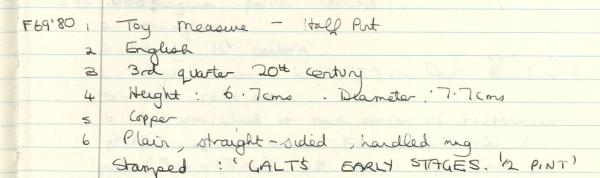 F69'80 1 Toy Measure - Half Pint
2 English
3 3rd quarter 20th century
4 Height : 6.7cms . Diameter : 7.7cms
5 Copper
6 Plain, straight-sided, handled mug
Stamped : 'GALTS EARLY STAGES. 1/2 PINT)